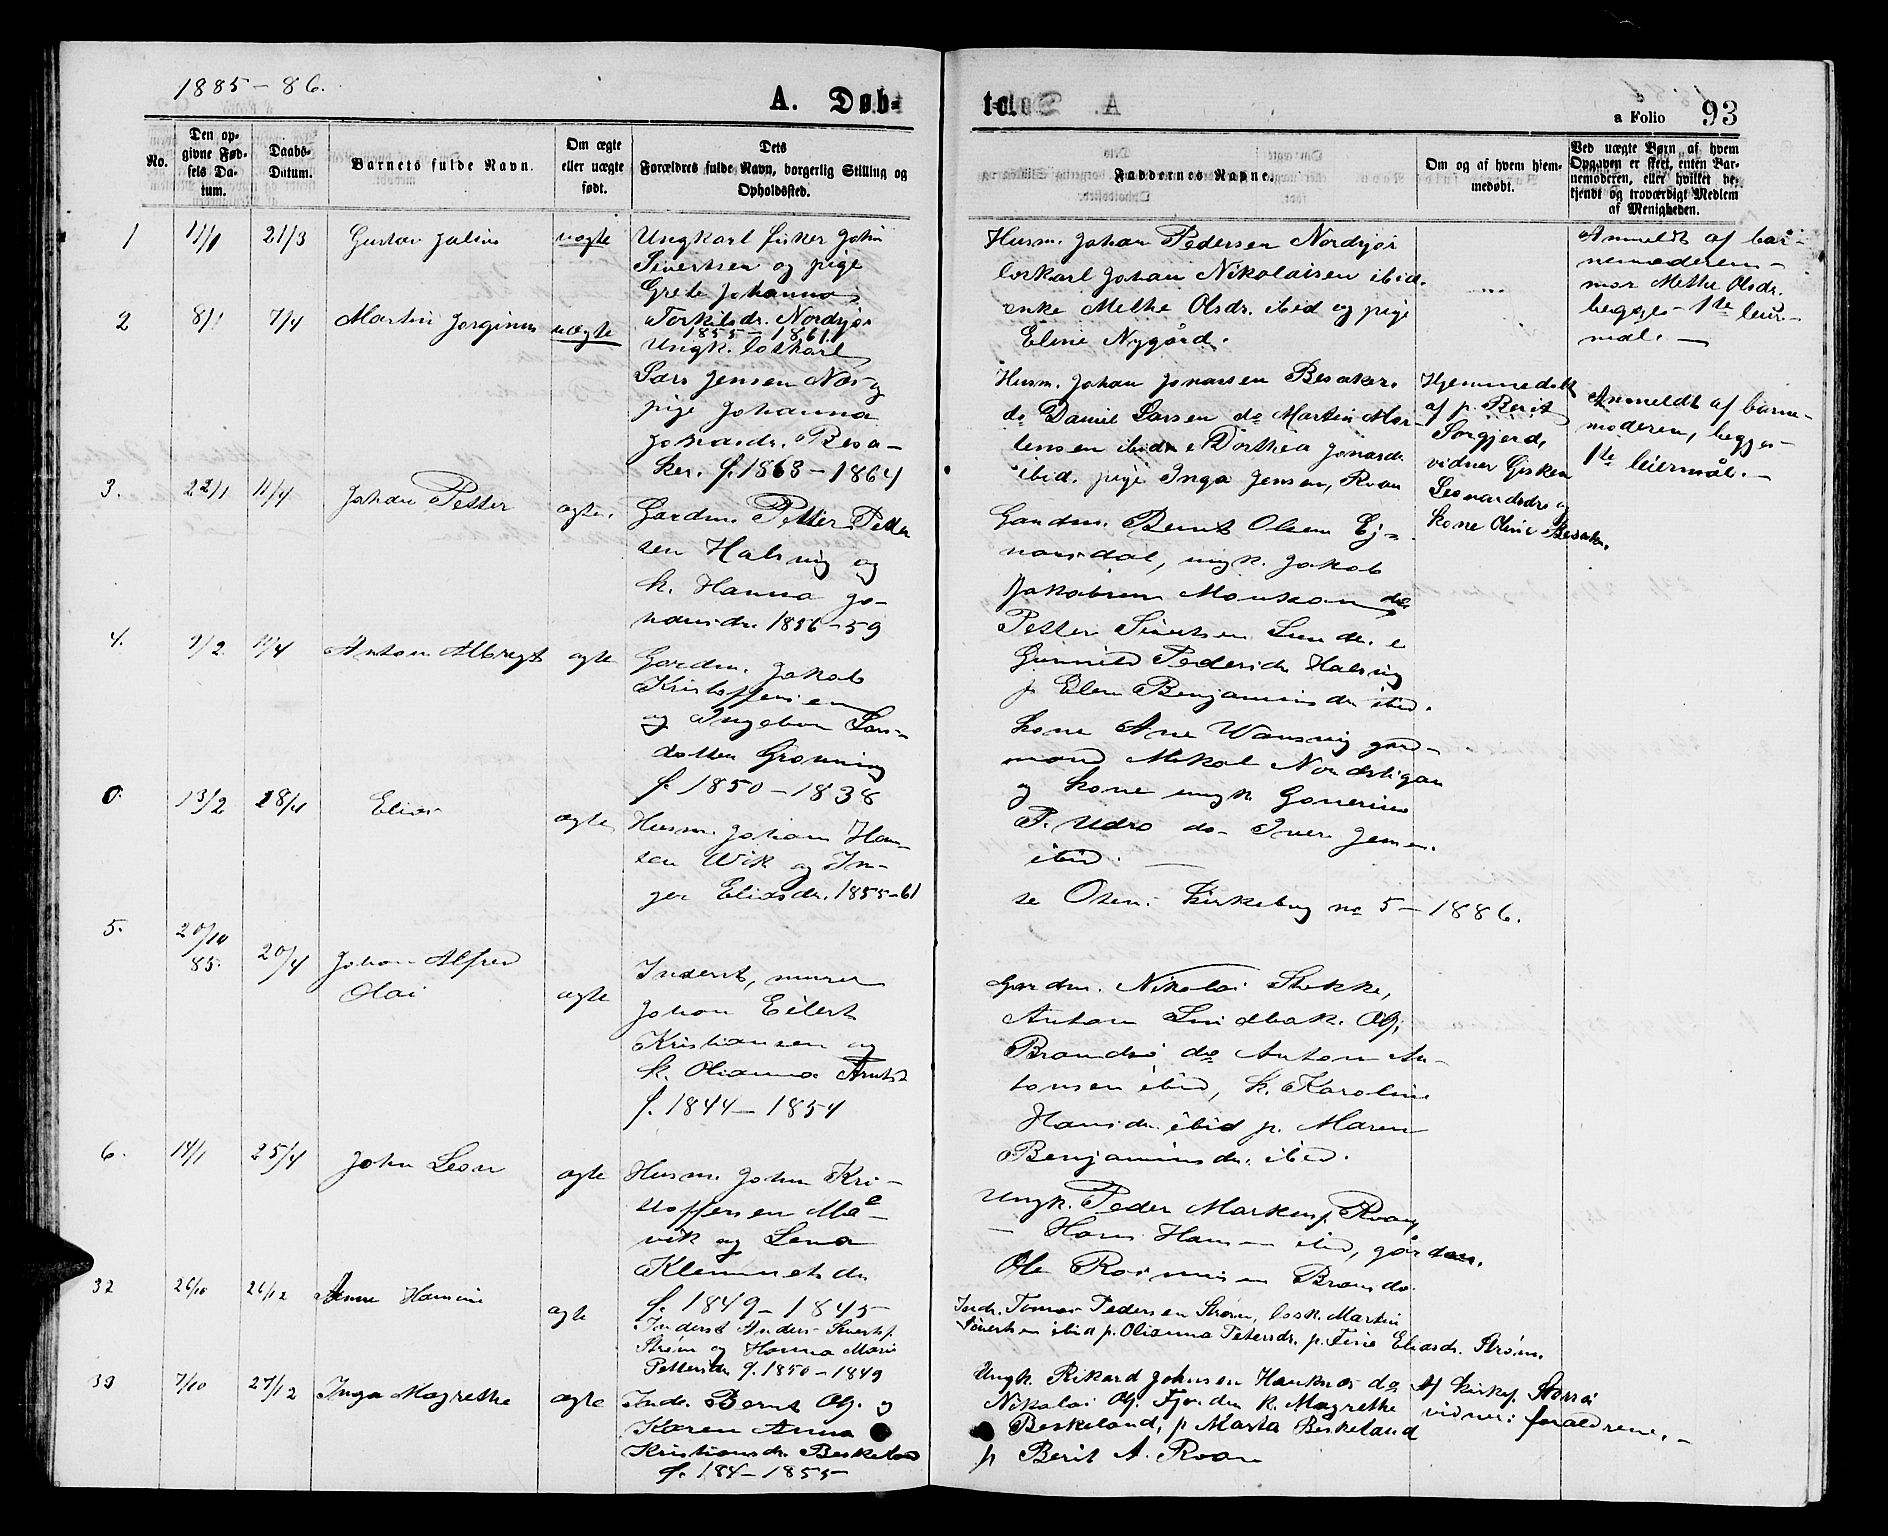 1885-86.
A. Døb-
te.
a Folio 93
No.
Den op-
givne Fød-
sels Da-
tum.
Daabs-
Datum.
Barnets fulde Navn.
Om ægte
eller uægte
født.
Dets
Forældres fulde Navn, borgerlig Stilling og
Opholdssted.
Faddernes Navne.
Om og af hvem hjem-
medøbt.
Ved uægte Børn af hvem
Opgaven er skeet, enten Bar-
nemoderen, eller hvilket be-
kjendt og troværdigt Medlem
af Menigheden.
1 11/1 21/3 Gustav Julius uægte
Ungkarl fisker John
Sivertsen og pige
Grete Johanna
Torkilsdr. Nordsjø
1855 - 1861.
Husm. Johan Pedersen Nordsjør
loskarl Johan Nikolaisen ibid.
enke Methe Olsdr. ibid og pige
Eline Nygård.
Anmeldt af bar-
nemoderens
mor Methe Olsdr.
begges 1ste leier-
mål. —
2 8/1 7/4 Martin Jorginus uægte
Ungk. loskarl
Lars Jensen Næs og
pige Johanna
Jonasdr. Besa-
ker. f. 1863-1864
Husm. Johan Jonassen Besaker.
do Daniel Larsen do Martin Mor-
tensen ibid. e Dorthea Jonasdr.
ibid. pige Inga Jensen, Roan
Hjemmedøbt
af p. Berit
Sørgjerd,
vidner Gisken
Leonardsdr. og
kone Oline Besaker.
Anmeldt af barne-
moderen, begges
1te leiermål. —
3. 22/1 11/4 Johan Petter ægte.
Gardm. Petter Peder
sen Halsvig og
k. Hanna Jo-
nansdr. 1856-59
Gardm. Bernt Olsen Ej-
narsdal, ungk. Jakob
Jakobsen Monsson do
Petter Sivertsen Sund. e
Gunnild Pedersdr Halsvig
p Elen Benjaminsdr ibid.
4. 2/2 11/4 Anton Albregt ægte
Gardm. Jakob
Kristoffersen
og Ingebor Lars-
datter Grønning
f. 1850-1838
kone Ane Wansvig gard-
mand Mikal Nordstigan
og kone ungk
P. Udrø do Iver Jensen.
ibid. —
0. 13/2 28/4 Elias ægte
Husm. Johan Han-
sen Wik og In-
ger Eliasdr. 1855-61
se Osen. Kirkebog no 5 - 1886.
5. 20/10 85. 20/4 Johan Alfred
Olai ægte
Inderst, murer
Johan Eilert
Kristiansen og
k. Olianna Arnts
f. 1844-1854
Gardm. Nikolai Stokke,
Anton Lindbak. Og;
Brandsø do Anton An-
tonsen ibid, k. Karoline
Hansdr. ibid p. Maren
Benjaminsdr. ibid.
6. 14/1 25/4 John Leon ægte
Husm. John Kri-
stoffersen Må-
vik og Lena
Klemmetsdr
f. 1849-1845
Ungk. Peder Markusf. Roan
— Hans Hansen ibid, gårdm.
Ole Rasmusen Brandsø
32 26/10 26/12 Anne Hansine ægte
Inderst Anders Sivertsf.
Strøm og Hanna Marie
Pettersdr f. 1850-1849
Indr. Tomas Pedersen Strøm, losk. Martin
Sivertsen ibid p. Olianna Petersdr. p. Fine Eliasdr. Strøm.
33 7/10 27/12 Inga Magrethe ægte
Indr. Bernt Og. og
Karen Anna
Kristiansdr. Beskeland
f. 184-1855
Ungk. Rikard Johnsen Hauknes do
Nikolai Og. Fjorden k. Magrethe
Beskeland, p Marta Beskeland
p Berit A. Roan
Af kirkes. Storsø
vidner: forældrene. —